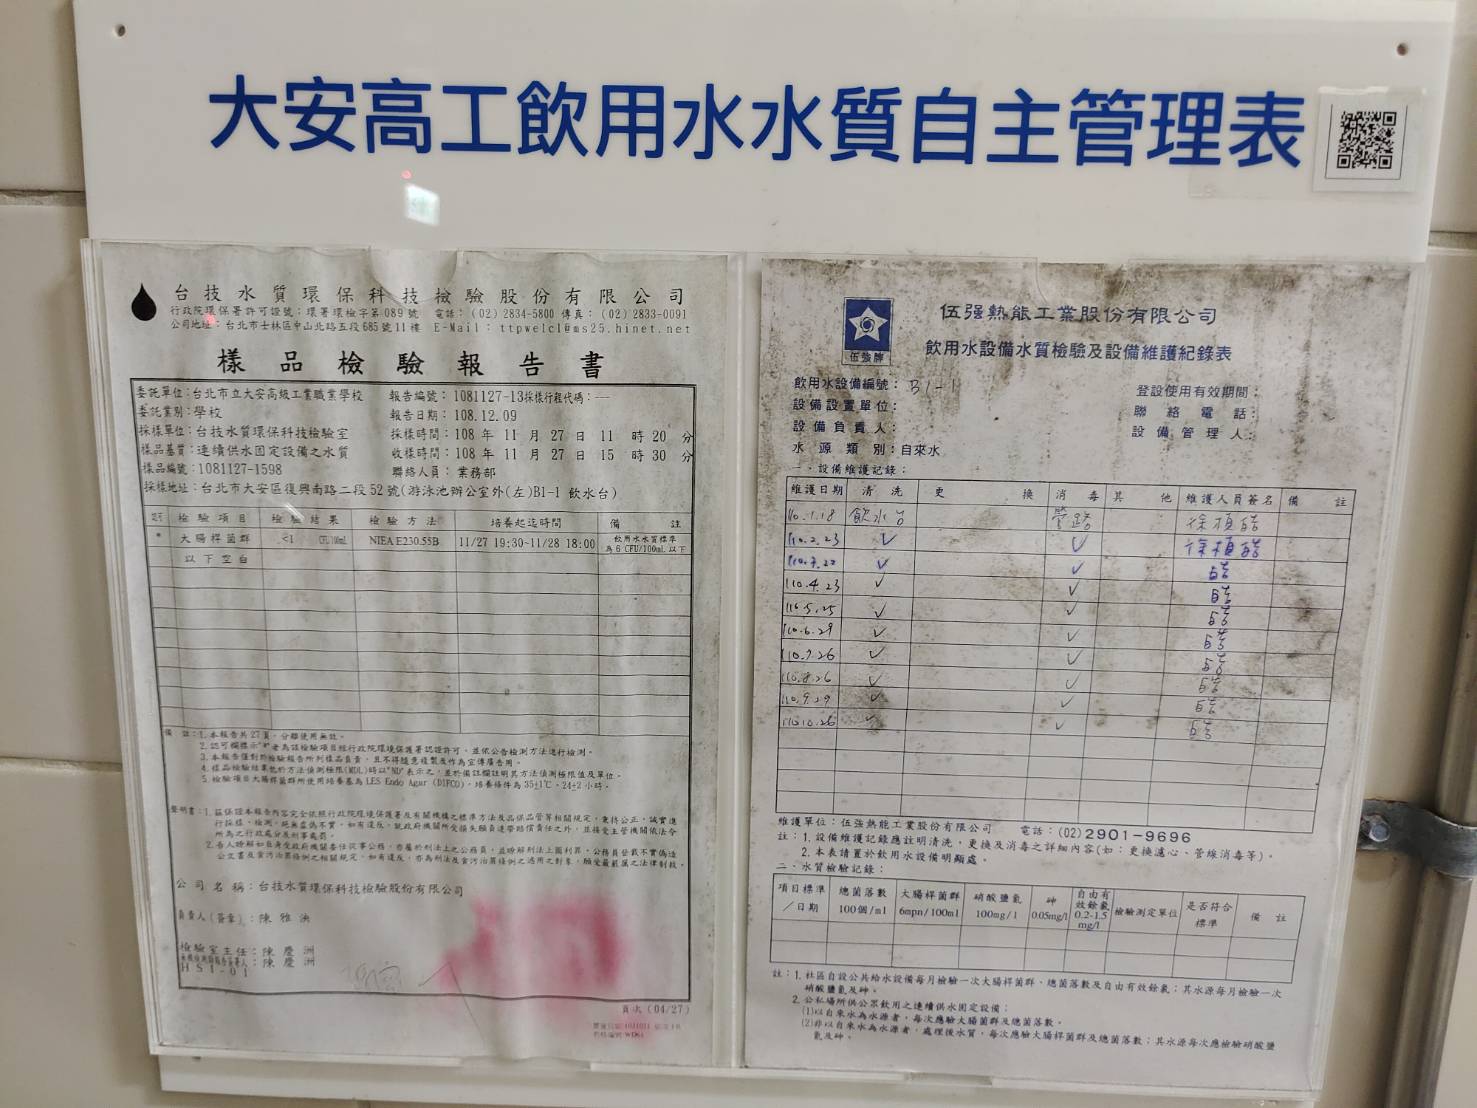 大安高工飲用水水質自主管理表
台技水質環保科技檢驗股份有限公司
行政院環保署許可證號：環署環檢字第089號 電話：(02) 2834-5800 傳真：(02) 2833-0091
公司地址：台北市士林區中山北路五段685號11樓 E-Mail：ttpwelcl@ms25.hinet.net
樣品檢驗報告書
委託單位：台北市立大安高級工業職業學校 報告編號：1081127-13採樣行程代碼：—
委託業別：學校 報告日期：108.12.09
採樣單位：台技水質環保科技檢驗室 採樣時間：108 年 11 月 27 日 11 時 20 分
樣品基質：連續供水固定設備之水質 收樣時間：108 年 11 月 27 日 15 時 30 分
樣品編號：1081127-1598 聯絡人員：業務部
採樣地址：台北市大安區復興南路二段52號(游泳池辦公室外(左)B1-1 飲水台)
檢驗項目 檢驗結果 檢驗方法 培養起迄時間 備註
* 大腸桿菌群 <1 CFU/100mL NIEA E230.55B 11/27 19:30~11/28 18:00 飲用水水質標準
為6 CFU/100mL以下
以下空白
備註：1.本報告共27頁，分離使用無效。
2.認可欄標示"*"者為該檢驗項目經行政院環境保護署認證許可，並依公告檢測方法進行檢測。
3.本報告僅對於檢驗報告所列樣品負責，且不得隨意複製及作為宣傳廣告用。
4.樣品檢驗結果低於方法偵測極限(MDL)時以"ND"表示之，並於備註欄註明其方法偵測極限值及單位。
5.檢驗項目大腸桿菌群所使用培養基為 LES Endo Agar (DIFCO)，培養條件為 35±1℃，24±2小時。
聲明書：1.茲保證本報告內容完全依照行政院環境保護署及有關機構之標準方法及品保品管等相關規定，秉持公正、誠實進
行採樣、檢測。絕無虛偽不實，如有違反，就政府機關所受損失願負連帶賠償責任之外，並接受主管機關依法令
所為之行政處分及刑事處罰。
2.吾人瞭解如自身受政府機關委任從事公務，亦屬於刑法上之公務員，並瞭解刑法上圖利罪、公務員登載不實偽造
公文書及貪污治罪條例之相關規定，如有違反，亦為刑法及貪污治罪條例之適用之對象，願受最嚴厲之法律制裁。
公司名稱：台技水質環保科技檢驗股份有限公司
負責人(簽章)：陳雅泱
檢驗室主任：陳慶洲
陳慶洲
HSI-01
頁次 (04/27)
伍強牌
伍强熱能工業股份有限公司
飲用水設備水質檢驗及設備維護紀錄表
飲用水設備編號：B1-1 登設使用有效期間：
設備設置單位： 聯絡電話：
設備負責人： 設備管理人：
水源類別：自來水
一、設備維護記錄：
維護日期 清洗 更換 消毒 其他 維護人員簽名 備註
110.1.18 飲水台 管路
110.2.23 ✓ ✓
110.3.22 ✓ ✓
110.4.23 ✓ ✓
110.5.25 ✓ ✓
110.6.29 ✓ ✓
110.7.26 ✓ ✓
110.8.26 ✓ ✓
110.9.29 ✓ ✓
110.10.26 ✓ ✓
維護單位：伍強熱能工業股份有限公司 電話：(02)2901-9696
註：1.設備維護記錄應註明清洗、更換及消毒之詳細內容(如：更換濾心、管線消毒等)。
2.本表請置於飲用水設備明顯處。
二、水質檢驗記錄：
項目標準／日期 總菌落數 100個/ml 大腸桿菌群 6mpn/100ml 硝酸鹽氮 100mg/l 砷 0.05mg/l 自由有效餘氯 0.2-1.5 mg/l 檢驗測定單位 是否符合標準 備註
註：1.社區自設公共給水設備每月檢驗一次大腸桿菌群、總菌落數及自由有效餘氯；其水源每月檢驗一次
硝酸鹽氮及砷。
2.公私場所供公眾飲用之連續供水固定設備：
(1)以自來水為水源者，每次應驗大腸菌群及總菌落數。
(2)非以自來水為水源者，處理後水質，每次應驗大腸桿菌群及總菌落數；其水源每次應檢驗硝酸鹽
氮及砷。